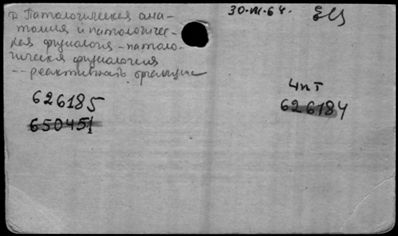 Патологическая ана-
томия и патологичес-
кая физиология - патоло-
гическая физиология
-- реактивность
30-VII-64.
626185
650451
чпт
626184